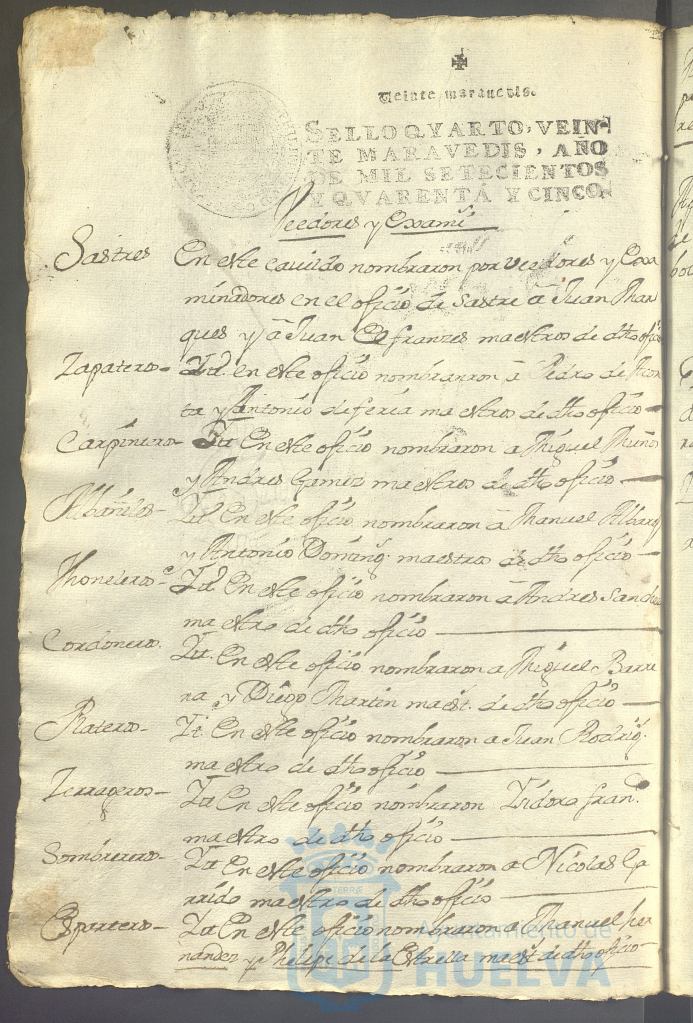 Veinte maravedis.
SELLO QVARTO, VEIN-
TE MARAVEDIS, AÑO
DE MIL SETECIENTOS
Y QVARENTA Y CINCO.
Veedores y Examis
Sastres En este cavildo nombraron por veedores y Exa
minadores en el oficio de Sastre â Juan Mar
ques y â Juan Cifranzes maestros de dho oficio
Zapatero- Yd. en este oficio nombraron â Pedro de Acos
ta y Antonio de feria maestros de dho oficio
Carpintero- Yd En este oficio nombraron a Miguel Muños
y Andres Gamiz maestros de dho oficio
Albañiles- Yd En este oficio nombraron â Manuel Albarz
y Antonio Doming. maestro de dho oficio
Yd En este oficio nombraron â Andres Sanches
maestro de dho oficio
Cordonero. Yd. En este oficio nombraron a Miguel Barre
ra y Diego Martin maest. de dho oficio
Platero- Yd En este oficio nombraron a Juan Rodrig.
maestro de dho oficio
Zerrageros- Yd En este oficio nombraron Ysidoro fran.co
maestro de dho oficio
Sombrerero- Yd En este oficio nombraron a Nicolas Ga
rrido maestro de dho oficio
Espartero- Yd En este oficio nombraron a Manuel her
nandez y Phelipe de la Estrella maest de dho oficio
Ayuntamiento de
HUELVA